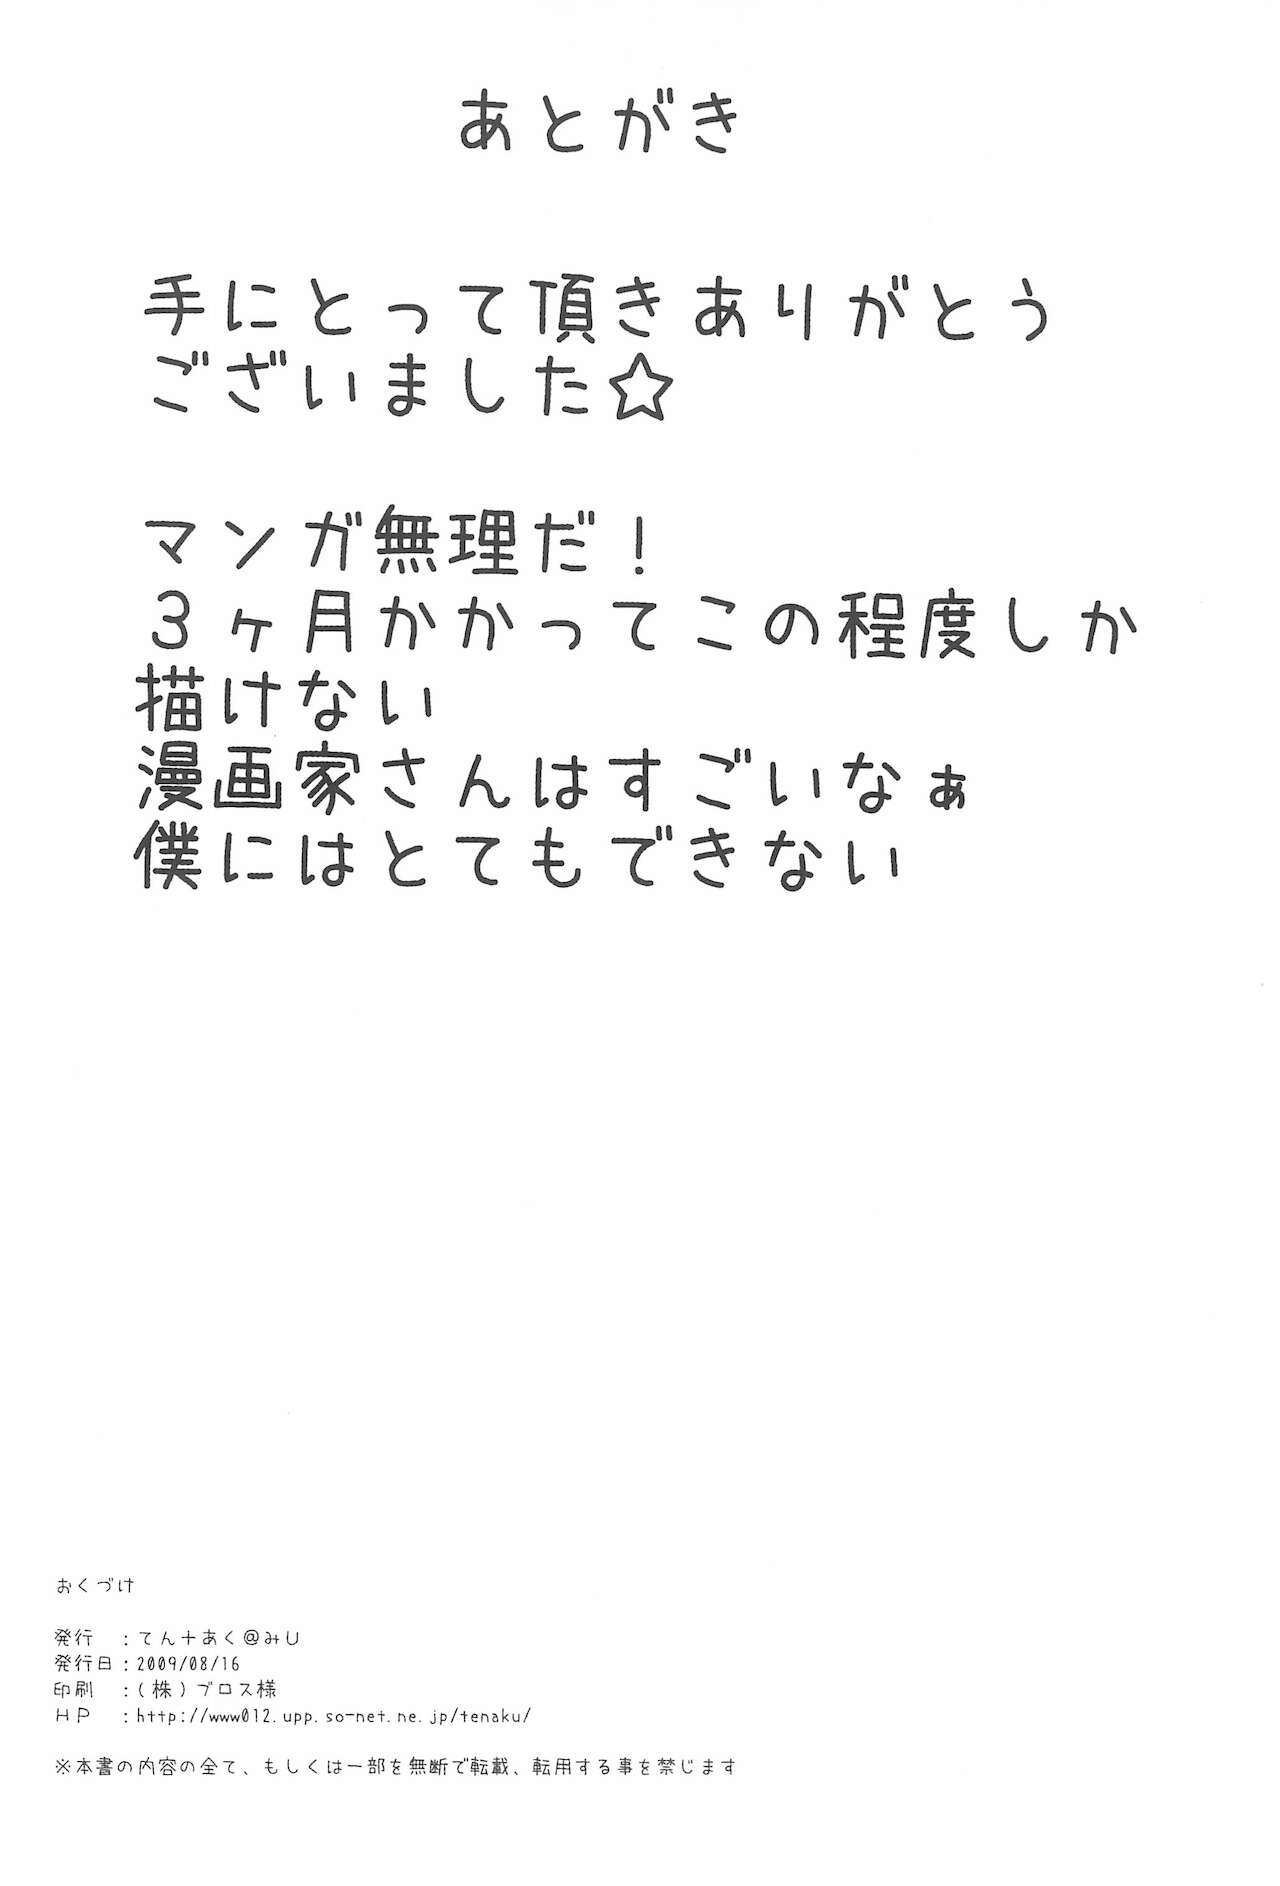 あとがき
手にとって頂きありがとう
ございました☆
マンガ無理だ！
３ヶ月かかってこの程度しか
描けない
漫画家さんはすごいなぁ
僕にはとてもできない
おくづけ
発行　：てん＋あく＠みU
発行日：2009/08/16
印刷　：(株)ブロス様
ＨＰ　：http://www012.upp.so-net.ne.jp/tenaku/
※本書の内容の全て、もしくは一部を無断で転載、転用する事を禁じます